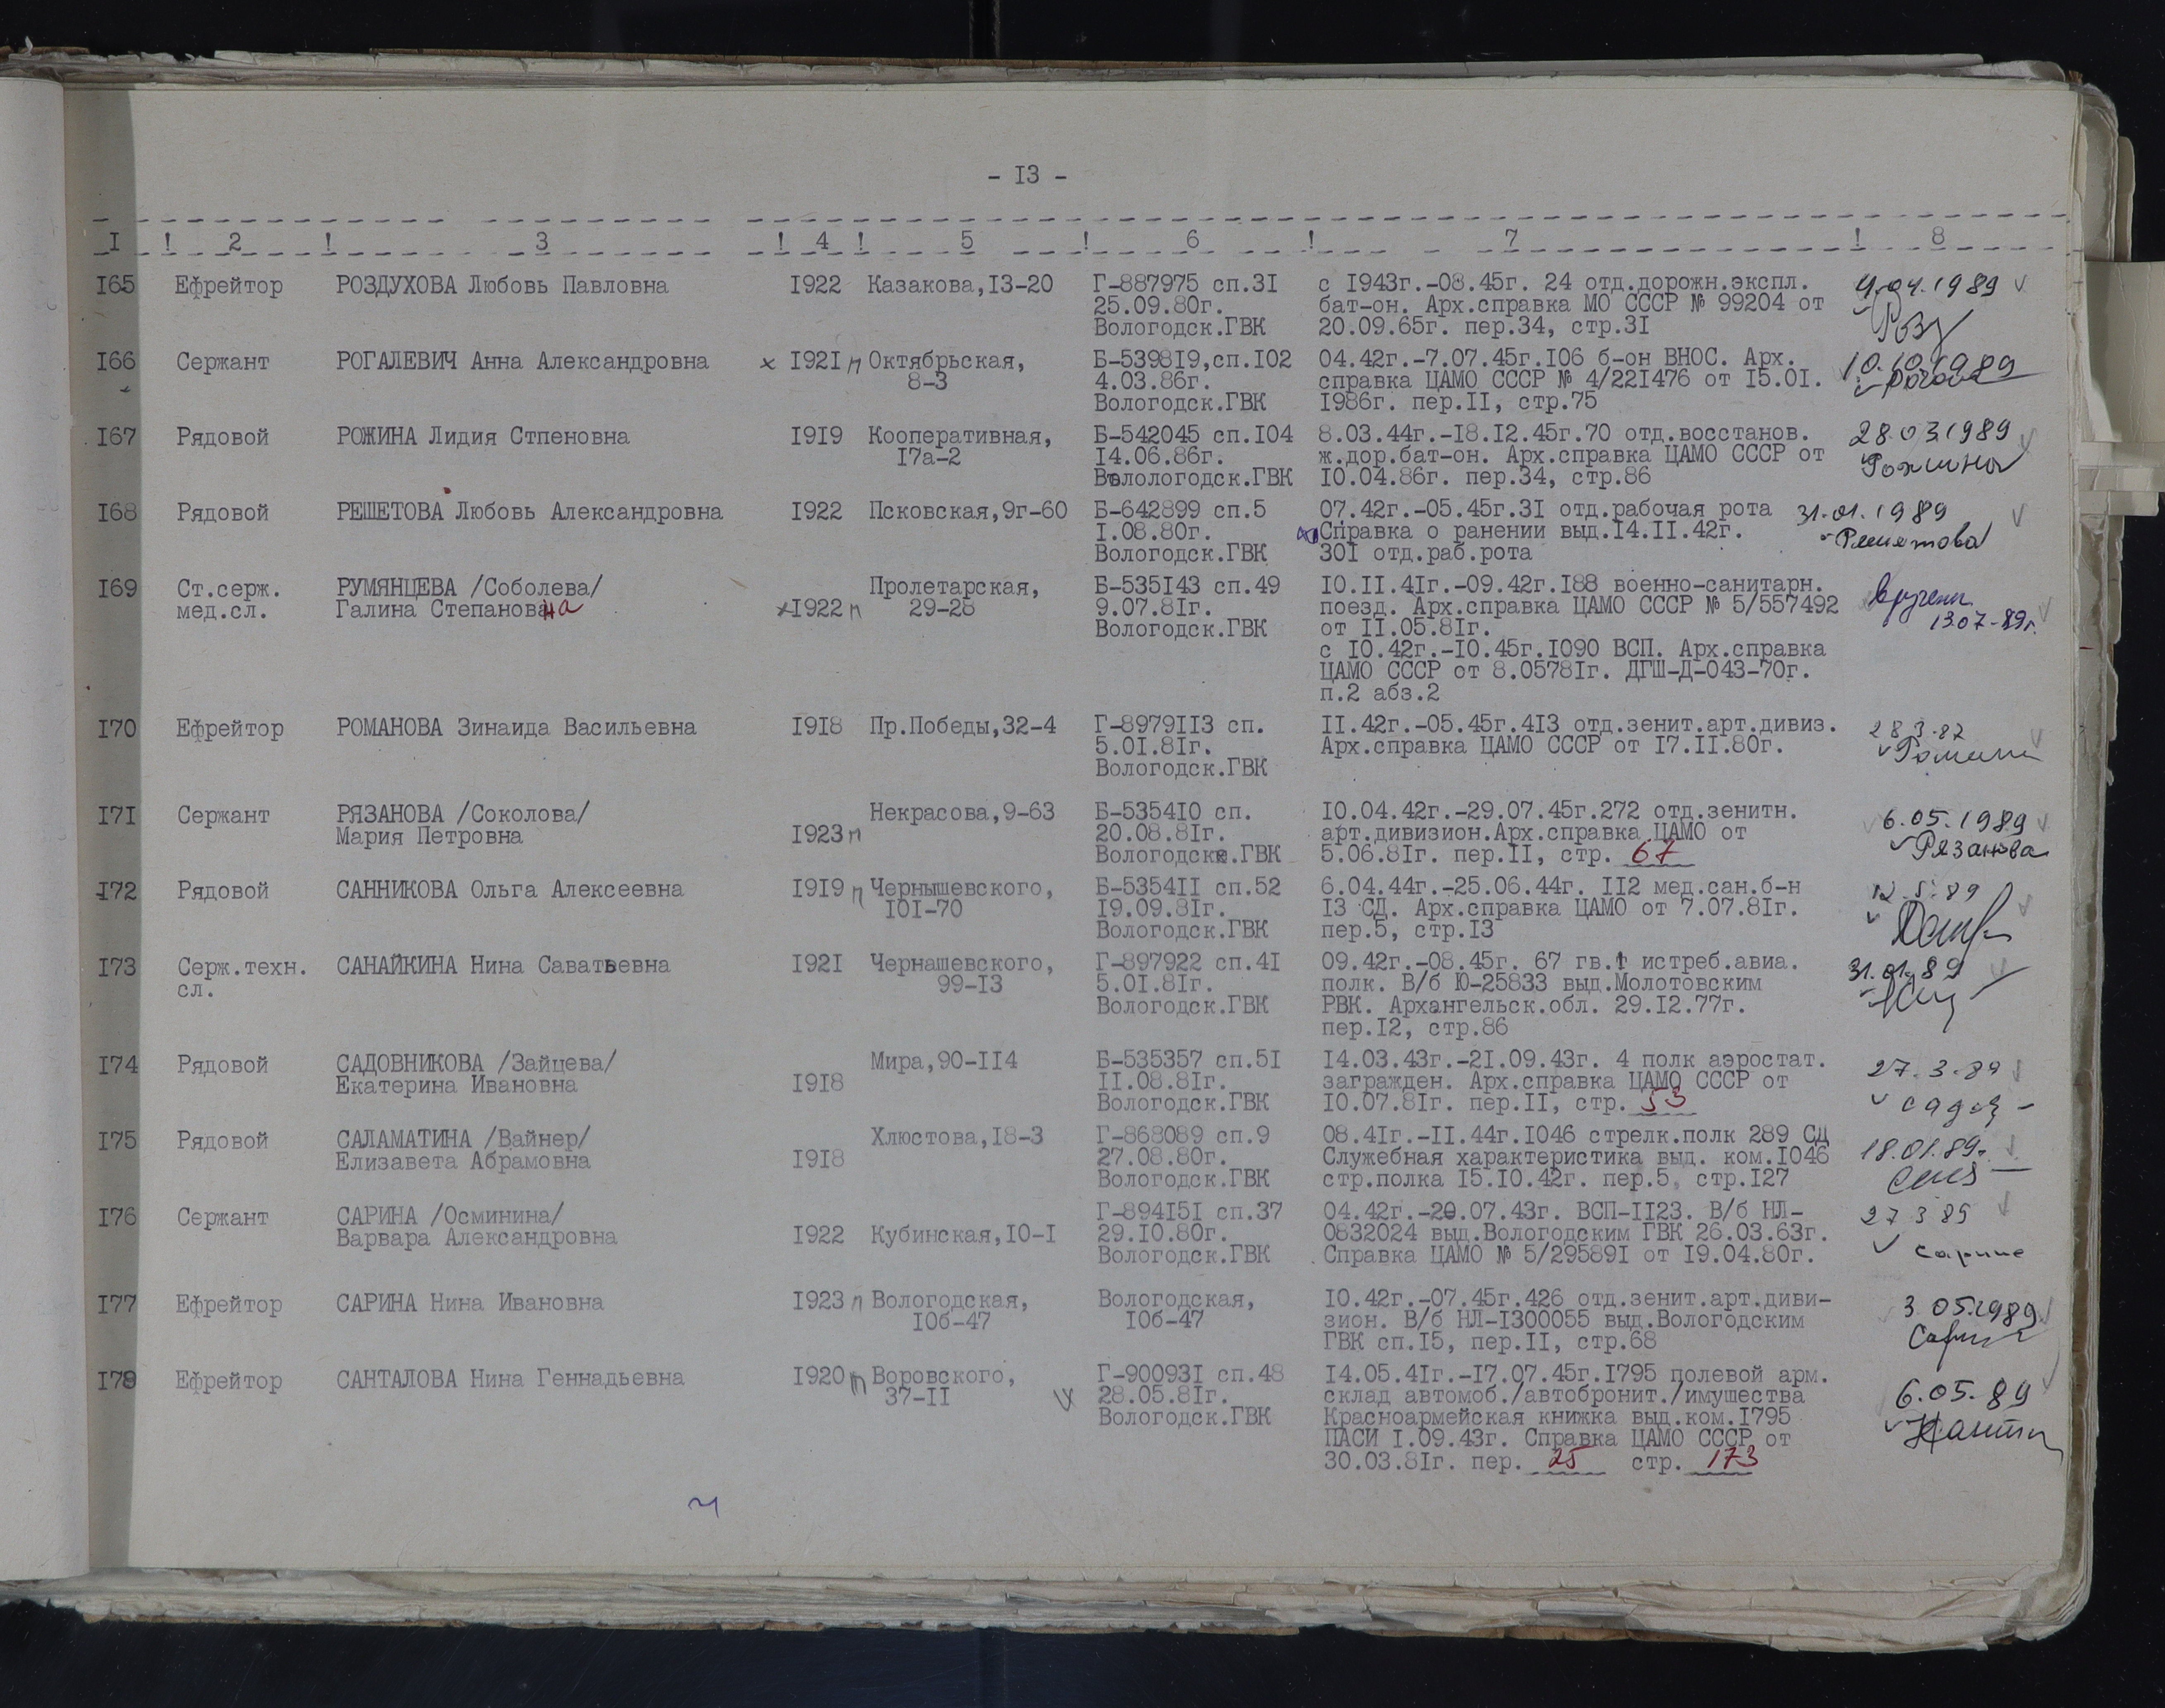 - I3 -
I ! 2 ! 3 ! 4 ! 5 ! 6 ! 7 ! 8
I65 Ефрейтор РОЗДУХОВА Любовь Павловна I922 Казакова,I3-20 Г-887975 сп.3I с I943г.-08.45г. 24 отд.дорожн.экспл. 4.04.1989
25.09.80г. бат-он. Арх.справка МО СССР № 99204 от
Вологодск.ГВК 20.09.65г. пер.34, стр.3I Роз
I66 Сержант РОГАЛЕВИЧ Анна Александровна х I92I п Октябрьская, Б-5398I9,сп.I02 04.42г.-7.07.45г.I06 б-он ВНОС. Арх. 10.10.1989
8-3 4.03.86г. справка ЦАМО СССР № 4/22I476 от I5.0I.
Вологодск.ГВК I986г. пер.II, стр.75
I67 Рядовой РОЖИНА Лидия Стпеновна I9I9 Кооперативная, Б-542045 сп.I04 8.03.44г.-I8.I2.45г.70 отд.восстанов. 28.03.1989
I7а-2 I4.06.86г. ж.дор.бат-он. Арх.справка ЦАМО СССР от Рожина
Волологодск.ГВК I0.04.86г. пер.34, стр.86
I68 Рядовой РЕШЕТОВА Любовь Александровна I922 Псковская,9г-60 Б-642899 сп.5 07.42г.-05.45г.3I отд.рабочая рота 31.01.1989
I.08.80г. Справка о ранении выд.I4.II.42г. Решетова
Вологодск.ГВК 30I отд.раб.рота
I69 Ст.серж. РУМЯНЦЕВА /Соболева/ Пролетарская, Б-535I43 сп.49 I0.II.4Iг.-09.42г.I88 военно-санитарн. вручен
мед.сл. Галина Степановна х I922 п 29-28 9.07.8Iг. поезд. Арх.справка ЦАМО СССР № 5/557492 13.07-89г.
Вологодск.ГВК от II.05.8Iг.
с I0.42г.-I0.45г.I090 ВСП. Арх.справка
ЦАМО СССР от 8.0578Iг. ДГШ-Д-043-70г.
п.2 абз.2
I70 Ефрейтор РОМАНОВА Зинаида Васильевна I9I8 Пр.Победы,32-4 Г-8979II3 сп. II.42г.-05.45г.4I3 отд.зенит.арт.дивиз.
5.0I.8Iг. Арх.справка ЦАМО СССР от I7.II.80г.
Вологодск.ГВК
I7I Сержант РЯЗАНОВА /Соколова/ Некрасова,9-63 Б-5354I0 сп. I0.04.42г.-29.07.45г.272 отд.зенитн. 6.05.1989
Мария Петровна I923 п 20.08.8Iг. арт.дивизион.Арх.справка ЦАМО от Рязанова
Вологодск.ГВК 5.06.8Iг. пер.II, стр. 67
I72 Рядовой САННИКОВА Ольга Алексеевна I9I9 п Чернышевского, Б-5354II сп.52 6.04.44г.-25.06.44г. II2 мед.сан.б-н 12.5.89
I0I-70 I9.09.8Iг. I3 СД. Арх.справка ЦАМО от 7.07.8Iг.
Вологодск.ГВК пер.5, стр.I3
I73 Серж.техн. САНАЙКИНА Нина Саватьевна I92I Чернашевского, Г-897922 сп.4I 09.42г.-08.45г. 67 гв. истреб.авиа. 31.01.89
сл. 99-I3 5.0I.8Iг. полк. В/б Ю-25833 выд.Молотовским
Вологодск.ГВК РВК. Архангельск.обл. 29.I2.77г.
пер.I2, стр.86
I74 Рядовой САДОВНИКОВА /Зайцева/ Мира,90-II4 Б-535357 сп.5I I4.03.43г.-2I.09.43г. 4 полк аэростат. 27.3.89
Екатерина Ивановна I9I8 II.08.8Iг. загражден. Арх.справка ЦАМО СССР от
Вологодск.ГВК I0.07.8Iг. пер.II, стр. 53
I75 Рядовой САЛАМАТИНА /Вайнер/ Хлюстова,I8-3 Г-868089 сп.9 08.4Iг.-II.44г.I046 стрелк.полк 289 СД 18.01.89г.
Елизавета Абрамовна I9I8 27.08.80г. Служебная характеристика выд. ком.I046
Вологодск.ГВК стр.полка I5.I0.42г. пер.5, стр.I27
I76 Сержант САРИНА /Осминина/ Г-894I5I сп.37 04.42г.-20.07.43г. ВСП-II23. В/б НЛ- 27 3 89
Варвара Александровна I922 Кубинская,I0-I 29.I0.80г. 0832024 выд.Вологодским ГВК 26.03.63г.
Вологодск.ГВК Справка ЦАМО № 5/29589I от I9.04.80г.
I77 Ефрейтор САРИНА Нина Ивановна I923 п Вологодская, Вологодская, I0.42г.-07.45г.426 отд.зенит.арт.диви- 3.05.1989
I0б-47 I0б-47 зион. В/б НЛ-I300055 выд.Вологодским
ГВК сп.I5, пер.II, стр.68
I78 Ефрейтор САНТАЛОВА Нина Геннадьевна I920 п Воровского, Г-90093I сп.48 I4.05.4Iг.-I7.07.45г.I795 полевой арм.
37-II 28.05.8Iг. склад автомоб./автобронит./имущества 6.05.89
Вологодск.ГВК Красноармейская книжка выд.ком.I795
ПАСИ I.09.43г. Справка ЦАМО СССР от
30.03.8Iг. пер. 25 стр. 173